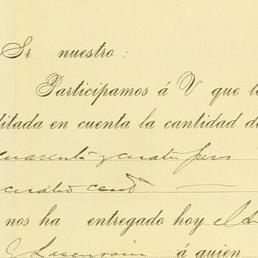 Sr nuestro:
Participamos á V que
ditada en cuenta la cantidad d
cuarenta y cuatro pesos
cuatro cent
nos ha entregado hoy el
á quien